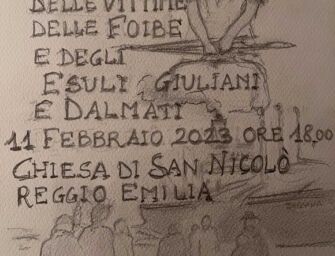 DELLE VITTIME
DELLE FOIBE
E DEGLI
ESULI GIULIANI
E DALMATI
11 FEBBRAIO 2023 ORE 18,00
CHIESA DI SAN NICOLÒ
REGGIO EMILIA